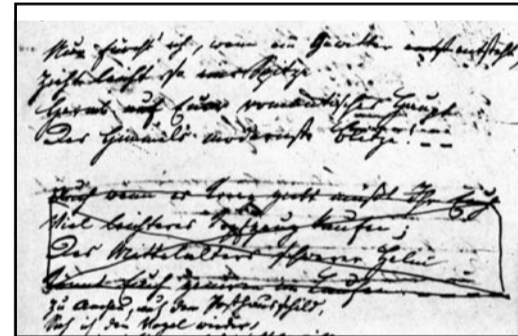 Nur fürcht' ich, wenn ein Gewitter entsteht,
Zieht leicht so eine Spitze
Herab auf Euer romantisches Haupt
Des Himmels modernste Blitze! —
Auch wenn es Krieg giebt müßt Ihr Euch
Viel leichteres Kopfzeug kaufen;
Des Mittelalters schwerer Helm
Könnt Euch geniren im Laufen
Zu Aachen, auf dem Posthausschild,
Sah ich den Vogel wieder,